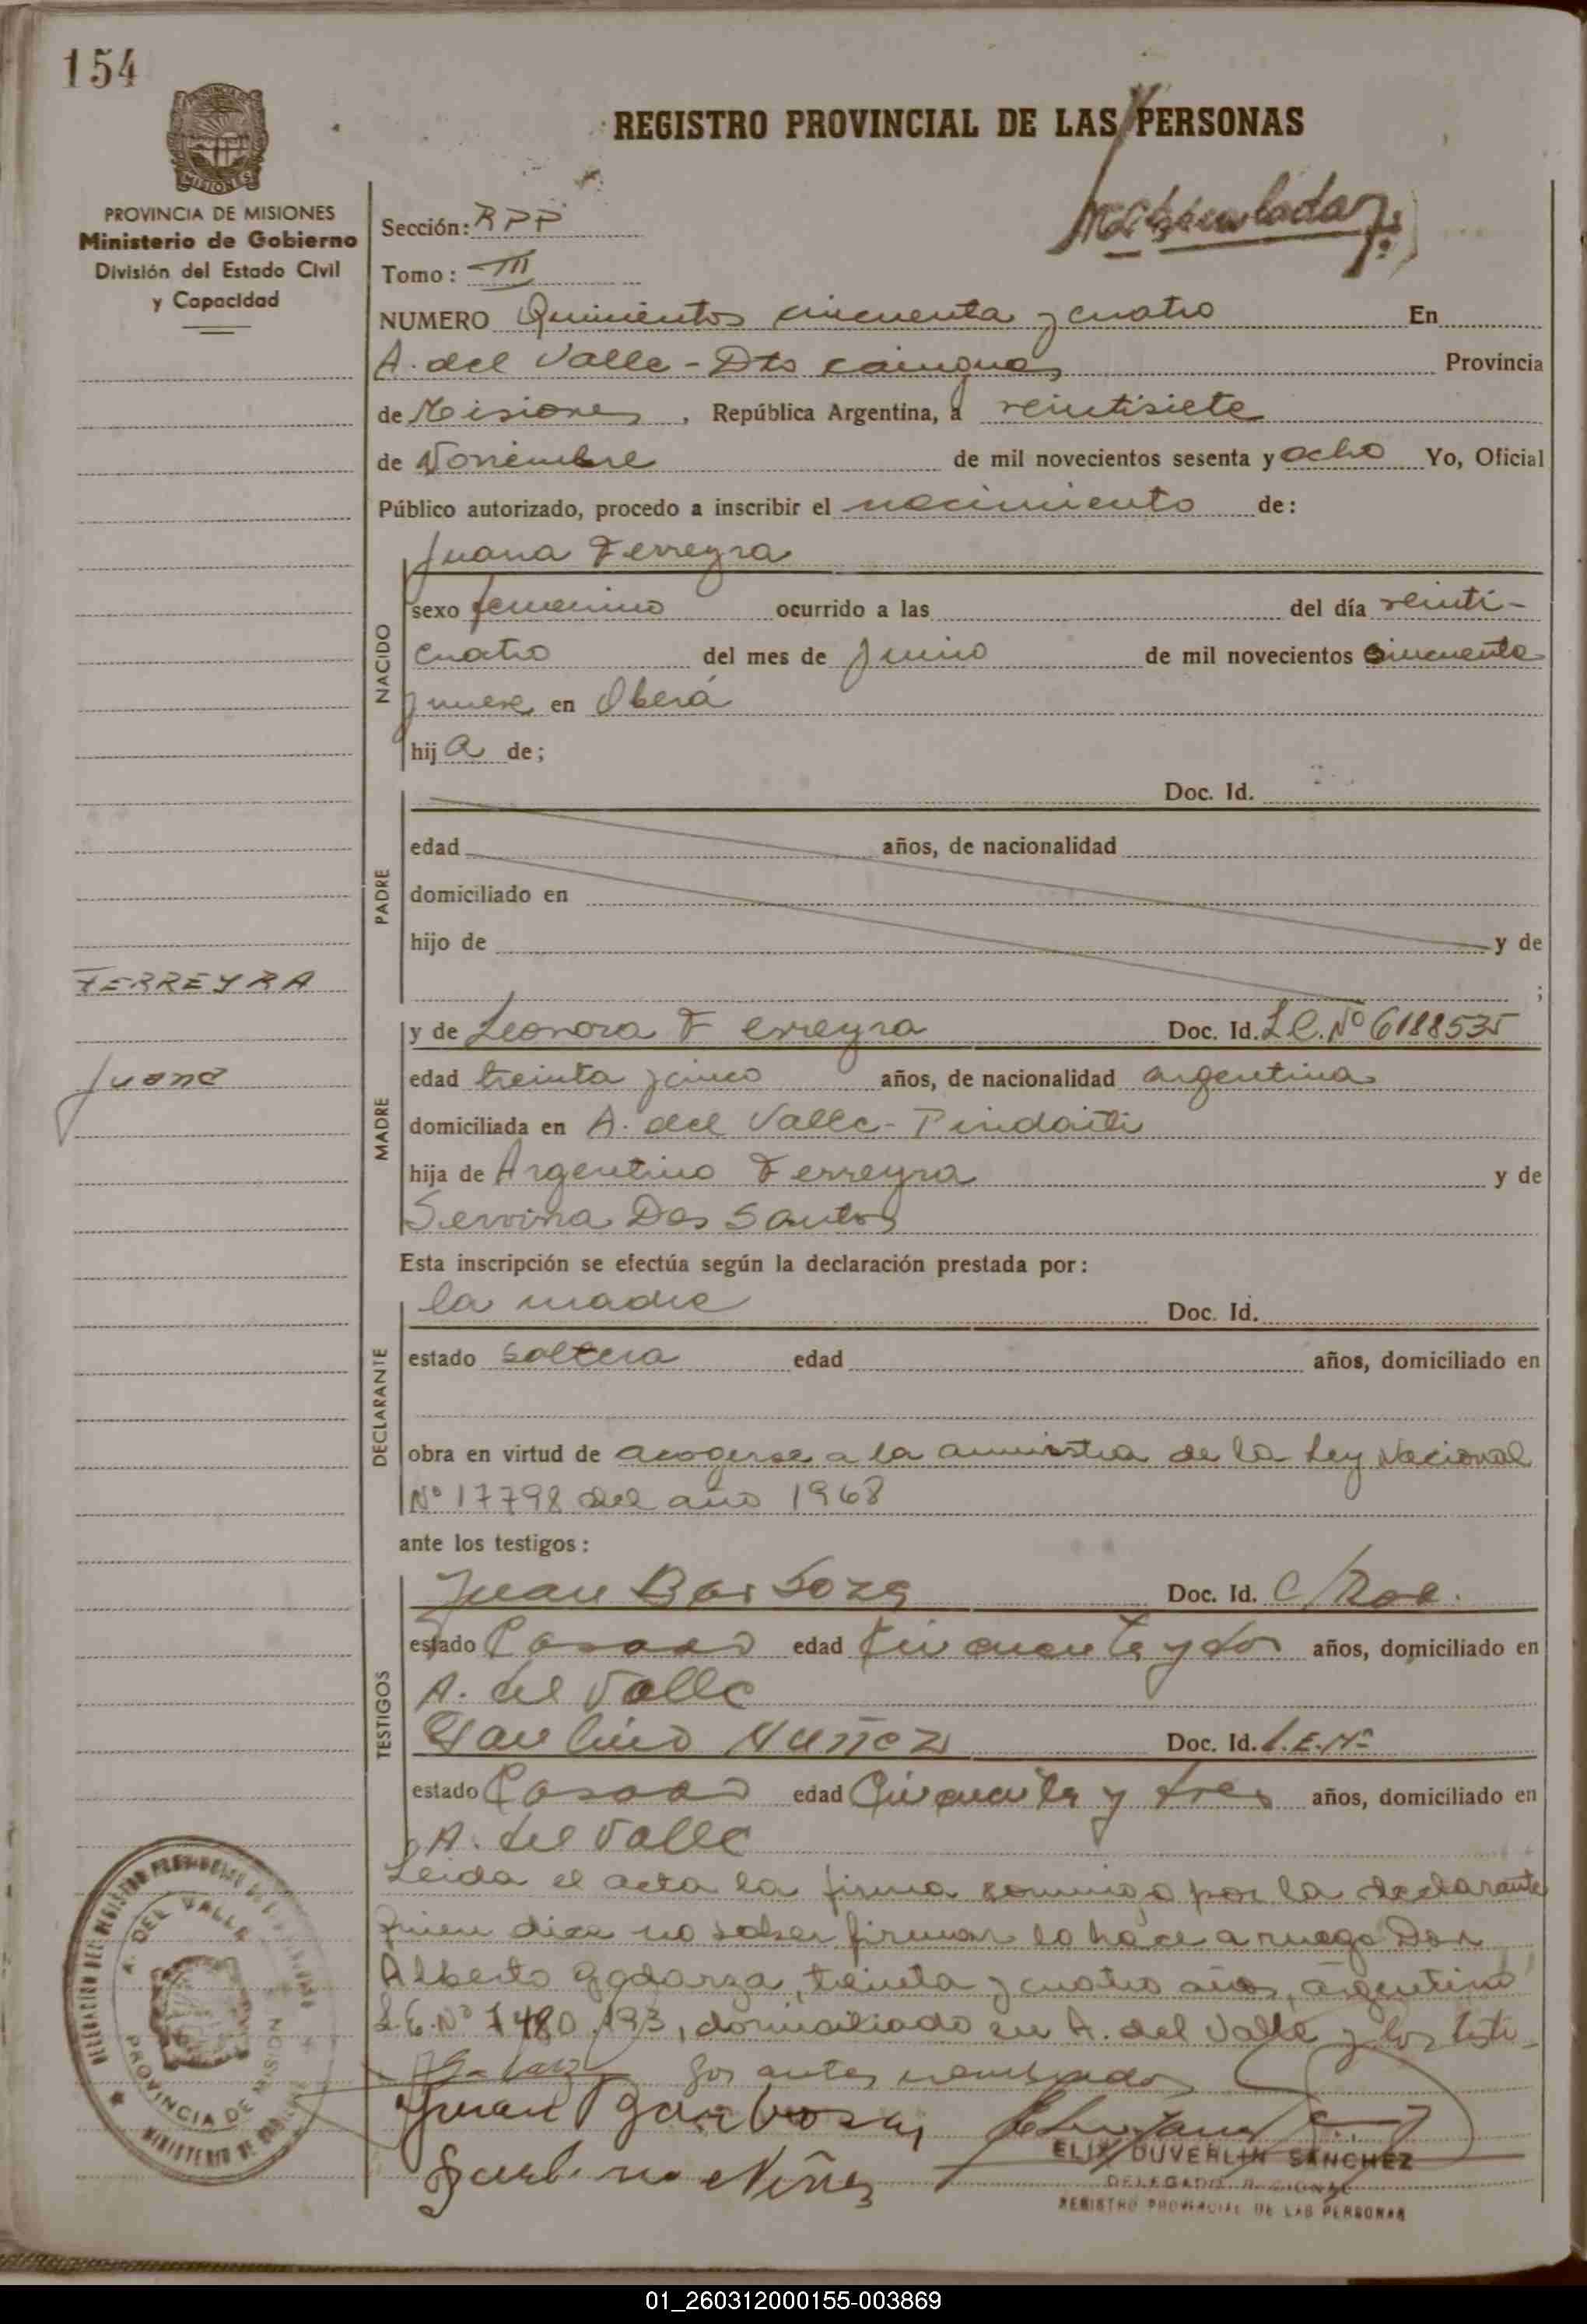 154
REGISTRO PROVINCIAL DE LAS PERSONAS
PROVINCIA DE MISIONES
Ministerio de Gobierno
División del Estado Civil
y Capacidad
Matriculada
Sección: RPP
Tomo: III
NUMERO Quinientos cincuenta y cuatro En
A. del Valle - Dto Cainguas Provincia
de Misiones, República Argentina, a veintisiete
de Noviembre de mil novecientos sesenta y ocho Yo, Oficial
Público autorizado, procedo a inscribir el nacimiento de:
Juana Ferreyra
NACIDO
sexo femenino ocurrido a las del día veinti-
cuatro del mes de Junio de mil novecientos cincuenta
y nueve en Oberá
hija de;
PADRE
Doc. Id.
edad años, de nacionalidad
domiciliado en
hijo de y de
;
FERREYRA
Juana
MADRE
y de Leonora Ferreyra Doc. Id. L.C. Nº 6188535
edad treinta y cinco años, de nacionalidad argentina
domiciliada en A. del Valle - Pindaiti
hija de Argentino Ferreyra y de
Servina Dos Santos
Esta inscripción se efectúa según la declaración prestada por:
DECLARANTE
la madre Doc. Id.
estado soltera edad años, domiciliado en
obra en virtud de acogerse a la amnistia de la Ley Nacional
Nº 17798 del año 1968
ante los testigos:
TESTIGOS
Juan Barboza Doc. Id.
estado Casado edad Cincuenta y dos años, domiciliado en
A. del Valle
Paulino Nuñez Doc. Id. L.E.Nº
estado Casado edad Cincuenta y tres años, domiciliado en
A. del Valle
Leida el acta la firma conmigo por la declarante
quien dice no saber firmar lo hace a ruego Don
Alberto Godarza, treinta y cuatro años, argentino
L.E. Nº 7480.193, domiciliado en A. del Valle y los testi-
gos antes nombrados
Juan Barboza
Paulino Niñez
ELIX DUVERLIN SANCHEZ
DELEGADO
REGISTRO PROVINCIAL DE LAS PERSONAS
DELEGACION DEL REGISTRO PROVINCIAL DE LAS PERSONAS
A. DEL VALLE
PROVINCIA DE MISIONES
MINISTERIO DE GOBIERNO
01_260312000155-003869